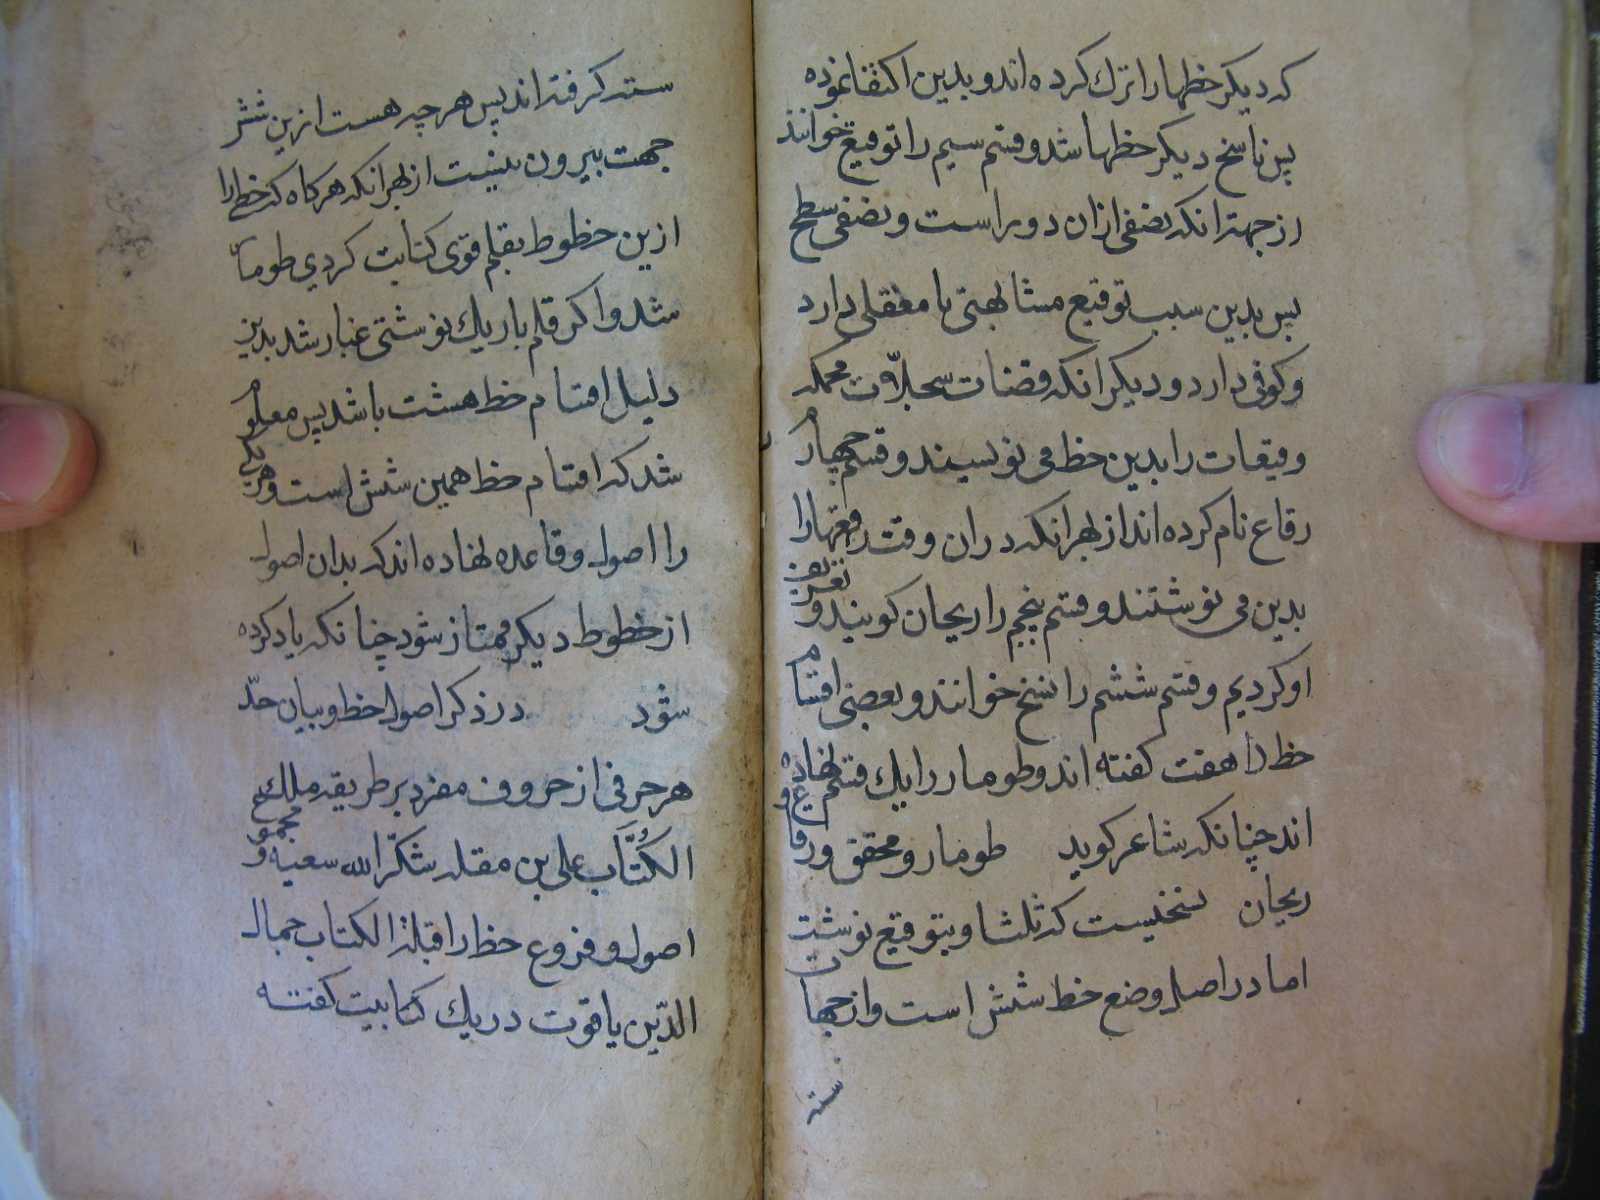 که دیکر خطها را ترك کرده اند و بدین اکتفا نموده
پس ناسخ دیکر خطها شد و قسم سیم را توقیع خوانند
از جهة انکه نصفی ازان دور است و نصفی سطح
پس بدین سبب توقیع مشابهتی با معقلی دارد
و کوفی دارد و دیکر انکه قضات سجلات محکمه
وقیعات را بدین خط می نویسند و قسم چهارم
رقاع نام کرده اند از بهر انکه در ان وقت رقعها را
بدین می نوشتند و قسم پنجم را ریحان کویند و تعریف
او کردیم و قسم ششم را نسخ خوانند و بعضی اقسام
خط را هفت کفته اند و طومار را یك قسم نهاده
اند چنانکه شاعر کوید طومار و محقق و رقاع و
ریحان نسخیست که ثلثا و بتوقیع نوشت
اما در اصل وضع خط شش است و از جهات
سته
سته کرفته اند پس هر چه هست ازین شش
جهت بیرون نیست از بهر انکه هر کاه که خط را
ازین خطوط بقلم قوی کتابت کردی طومار
شد و اکر قلم باریك نوشتی غبار شد بدین
دلیل اقسام خط هشت باشد پس معلوم
شد که اقسام خط همین شش است و هر یکی
را اصول و قاعده نهاده اند که بدان اصول
از خطوط دیکر ممتاز شود چنانکه یاد کرده
شود در ذکر اصول خط و بیان حدّ
هر حرفی از حروف مفرد بر طریقه ملك
الكُتَّاب علی بن مقله شکّر الله سعیه و مجموع
اصول و فروع خط را قبلة الکتاب جمال
الدّین یاقوت در یك کتابیت کفته